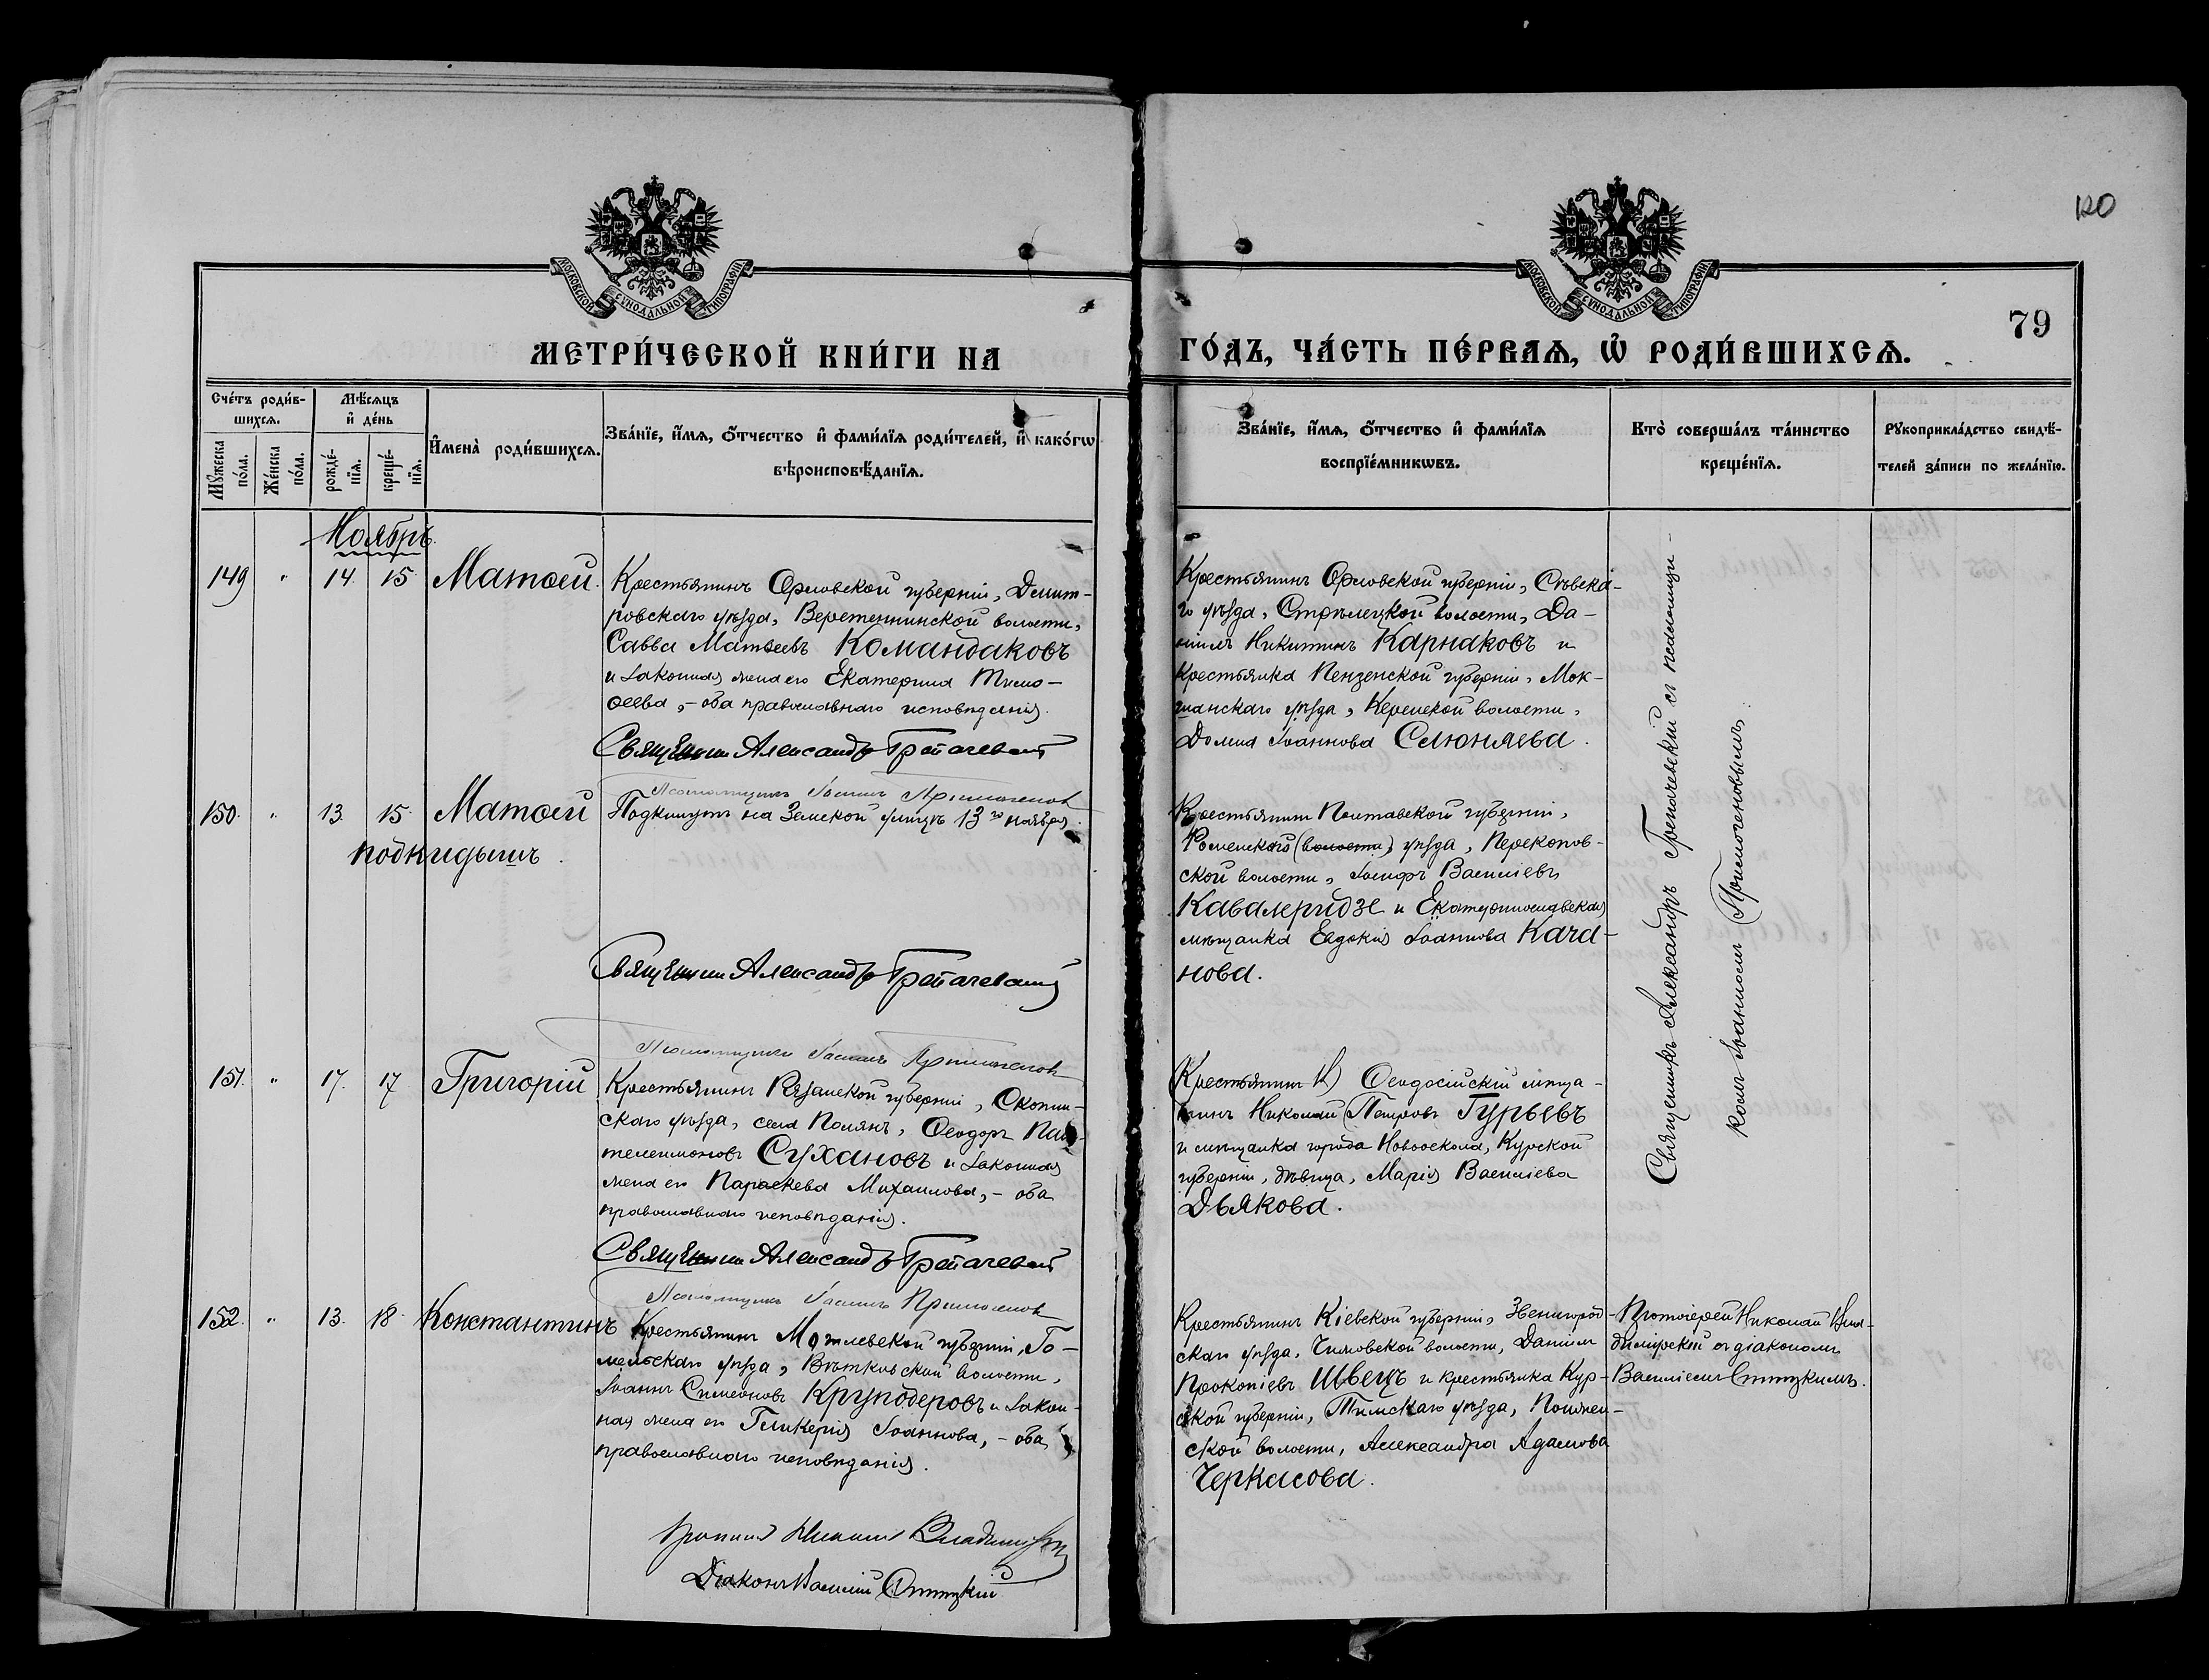 120
МОСКОВСКОЙ СѴНОДАЛЬНОЙ ТИПОГРАФІИ
МОСКОВСКОЙ СѴНОДАЛЬНОЙ ТИПОГРАФІИ
79
МЕТРИ́ЧЕСКОЙ КНИ́ГИ НА
ГО́ДЪ, ЧА́СТЬ ПЕ́РВАѦ, Ѡ҆ РОДИ́ВШИХСѦ.
Сче́тъ роди́в-
шихсѧ.
Мѣ́сѧцъ
и҆ де́нь
Мꙋ́жеска по́ла.
Же́нска по́ла.
рожде́-нїѧ.
креще́-нїѧ.
И҆мена̀ роди́вшихсѧ.
Зва́нїе, и҆́мѧ, ѻ҆́тчество и҆ фами́лїѧ роди́телей, и҆ како́гѡ
вѣроисповѣ́данїѧ.
Зва́нїе, и҆́мѧ, ѻ҆́тчество и҆ фами́лїѧ
воспрїе́мникѡвъ.
Кто̀ соверша́лъ та́инство
креще́нїѧ.
Рꙋкоприкла́дство свидѣ́-
телей за́писи по жела́нїю.
Ноябрь
149 " 14. 15. Матѳей.
Крестьянинъ Орловской губерніи, Дмит-
ровскаго уѣзда, Веретеннинской волости,
Савва Матѳеевъ Командаковъ
и законная жена его Екатерина Тимо-
ѳеева, - оба православнаго исповѣданія.
Священникъ Александръ Грепачевскій
Псаломщикъ Іоаннъ
Крестьянинъ Орловской губерніи, Сѣвска-
го уѣзда, Стрѣлецкой волости, Да-
ніилъ Никитинъ Карнаковъ и
крестьянка Пензенской губерніи, Мок-
шанскаго уѣзда, Керенской волости,
Домна Іоаннова Селюняева.
Священникъ Александръ Грепачевскій съ псаломщи-
комъ Іоанномъ
150. " 13. 15. Матѳей
подкидышъ.
Подкинутъ на Земской улицѣ 13го ноября.
Священникъ Александръ Грепачевскій
Псаломщикъ Іоаннъ
Крестьянинъ Полтавской губерніи,
Роменскаго (волости) уѣзда, Перекопов-
ской волости, Іосифъ Васильевъ
Кавалеридзе и Екатеринославская
мѣщанка Евдокія Іоаннова Кача-
нова.
151. " 17. 17 Григорій
Крестьянинъ Рязанской губерніи, Скопин-
скаго уѣзда, села Полянъ, Ѳеодоръ Пан-
телеимоновъ Сухановъ и законная
жена его Параскева Михаилова, - оба
православнаго исповѣданія.
Священникъ Александръ Грепачевскій
Псаломщикъ Іоаннъ
Крестьянинъ Ѳеодосійскій мѣща-
нинъ Николай Петровъ Гурьевъ
и мѣщанка города Новооскола, Курской
губерніи, дѣвица, Марія Васильева
Дьякова.
152. " 13. 18. Константинъ
Крестьянинъ Могилевской губерніи, Го-
мельскаго уѣзда, Вѣтковской волости,
Іоаннъ Симеоновъ Круподеровъ и закон-
ная жена его Гликерія Іоаннова, - оба
православнаго исповѣданія.
Протоіерей Николай Владимірскій
Діаконъ Василій
Крестьянинъ Кіевской губерніи, Звенигород-
скаго уѣзда, волости, Даніилъ
Прокопіевъ Швецъ и крестьянка Кур-
ской губерніи, Тимскаго уѣзда,
ской волости, Александра Адамова
Черкасова.
Протоіерей Николай Вла-
димірскій съ діакономъ
Василіемъ